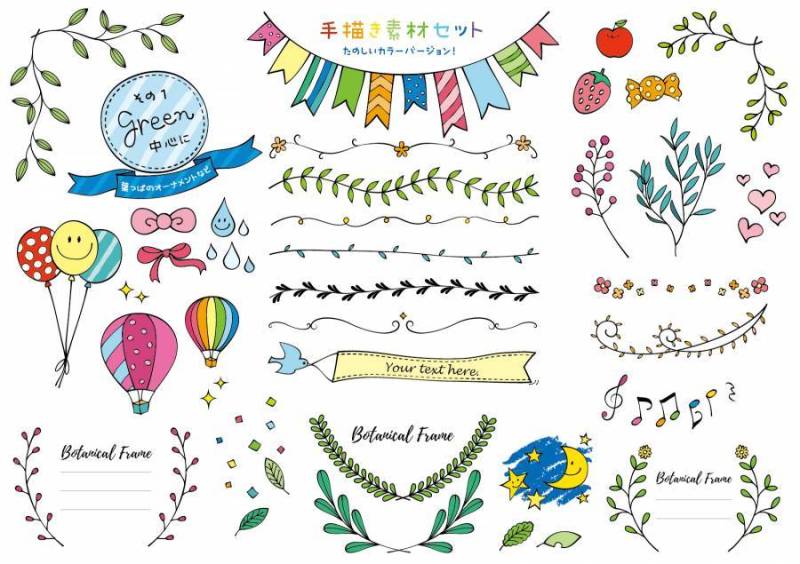 手描き素材セット
たのしいカラーバージョン!
その1
Green
中心に
葉っぱのオーナメントなど
Your text here.
Botanical Frame
Botanical Frame
Botanical Frame